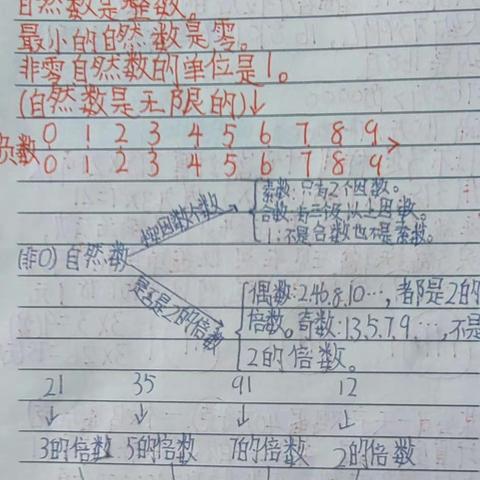 自然数是整数。
最小的自然数是零。
非零自然数的单位是1。
(自然数是无限的)↓
负数 0 1 2 3 4 5 6 7 8 9
0 1 2 3 4 5 6 7 8 9
素数:只有2个因数。
按因数个数
合数:有三个及以上因数。
1:不是合数也不是素数。
(非0)自然数
是否是2的倍数
偶数:2.4.6.8.10…,都是2的
倍数。奇数:1.3.5.7.9…,不是
2的倍数。
21 35 91 12
↓ ↓ ↓ ↓
3的倍数 5的倍数 7的倍数 2的倍数